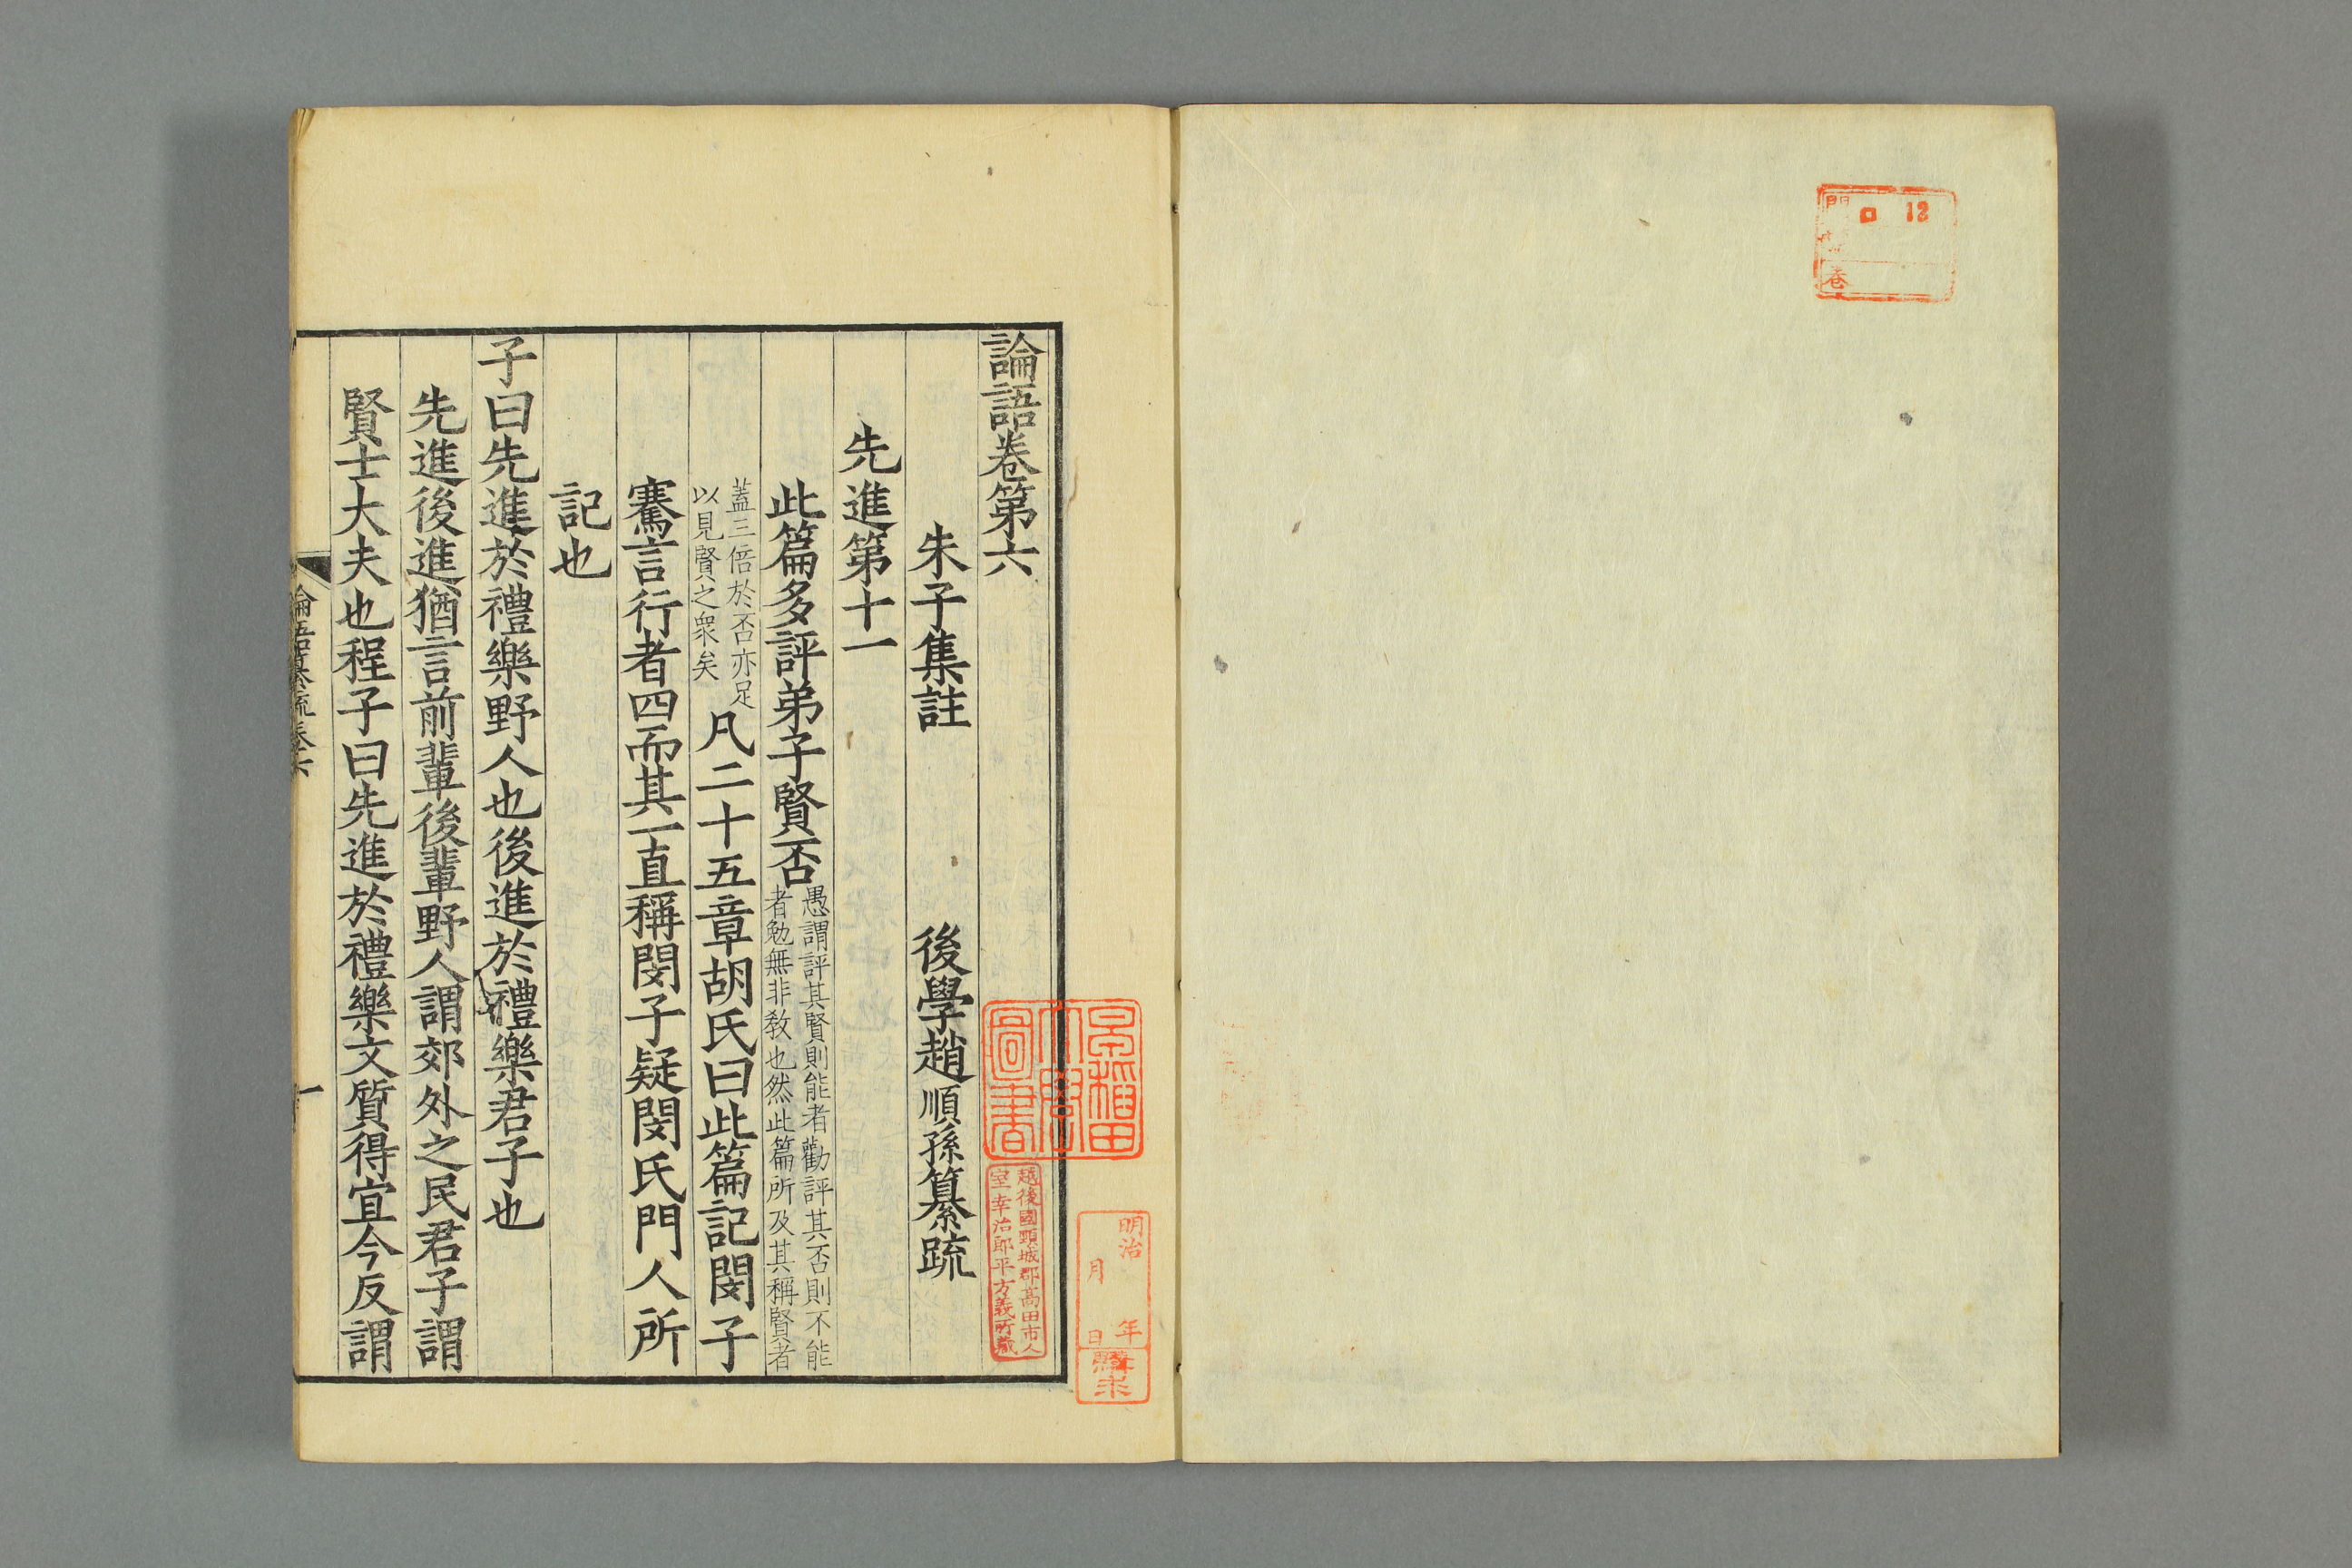 門 ロ 12
卷
論語卷第六
朱子集註 後學趙順孫纂疏
先進第十一
此篇多評弟子賢否愚謂評其賢則能者勸評其否則不能
者勉無非敎也然此篇所及其稱賢者
蓋三倍於否亦足
以見賢之衆矣
凡二十五章胡氏曰此篇記閔子
騫言行者四而其一直稱閔子疑閔氏門人所
記也
子曰先進於禮樂野人也後進於禮樂君子也
先進後進猶言前輩後輩野人謂郊外之民君子謂
賢士大夫也程子曰先進於禮樂文質得宜今反謂
論語纂疏卷六
一
早稻田
大學
圖書
越後國頸城郡高田市人
室幸治郎平方義所藏
明治 年
月 日
購求